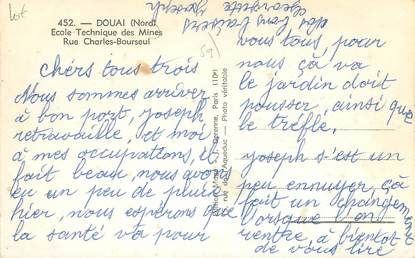 Lot
452. — DOUAI (Nord)
Ecole Technique des Mines
Rue Charles-Bourseul
59
chérs tous trois
Nous sommes arriver
à bon port, joseph
retravaille, et moi
à mes occupations, il
fait beau, nous avons
eu un peu de pluie
hier, nous espérons que
la santé va pour
vous tous, pour
nous çà va
le jardin doit
pousser, ainsi que
le trèfle.
joseph s'est un
peu ennuyer, çà
fait un changement
lorsque l'on
rentre, à bientôt
de vous lire
des bons baisers
Georgette joseph
rue de l'Aqueduc — Photo véritable
Paris (10e)